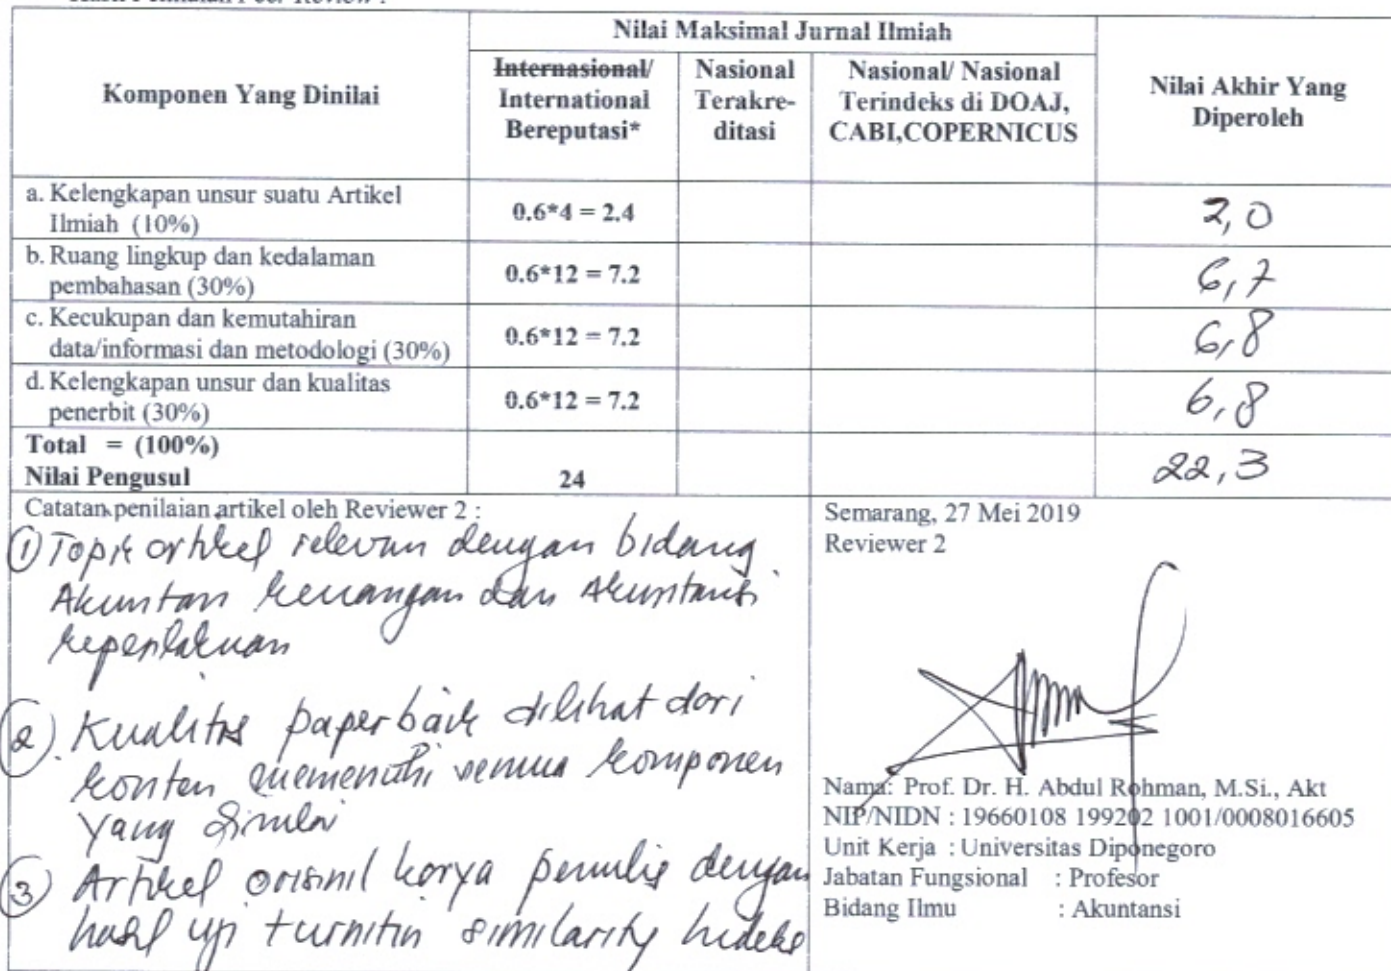 Nilai Maksimal Jurnal Ilmiah
Komponen Yang Dinilai
Internasional/
International
Bereputasi*
Nasional
Terakre-
ditasi
Nasional/ Nasional
Terindeks di DOAJ,
CABI,COPERNICUS
Nilai Akhir Yang
Diperoleh
a. Kelengkapan unsur suatu Artikel
Ilmiah (10%)
0.6*4 = 2.4
2,0
b. Ruang lingkup dan kedalaman
pembahasan (30%)
0.6*12 = 7.2
6,7
c. Kecukupan dan kemutahiran
data/informasi dan metodologi (30%)
0.6*12 = 7.2
6,8
d. Kelengkapan unsur dan kualitas
penerbit (30%)
0.6*12 = 7.2
6,8
Total = (100%)
Nilai Pengusul
24
22,3
Catatan penilaian artikel oleh Reviewer 2 :
① Topik artikel relevan dengan bidang
Akuntan keuangan dan Akuntansi
keperilakuan
② Kualitas paper baik dilihat dari
konten memenuhi semua komponen
yang dinilai
③ Artikel orisinil karya penulis dengan
hasil uji turnitin similarity indeks
Semarang, 27 Mei 2019
Reviewer 2
Nama: Prof. Dr. H. Abdul Rohman, M.Si., Akt
NIP/NIDN : 19660108 199202 1001/0008016605
Unit Kerja : Universitas Diponegoro
Jabatan Fungsional : Profesor
Bidang Ilmu : Akuntansi